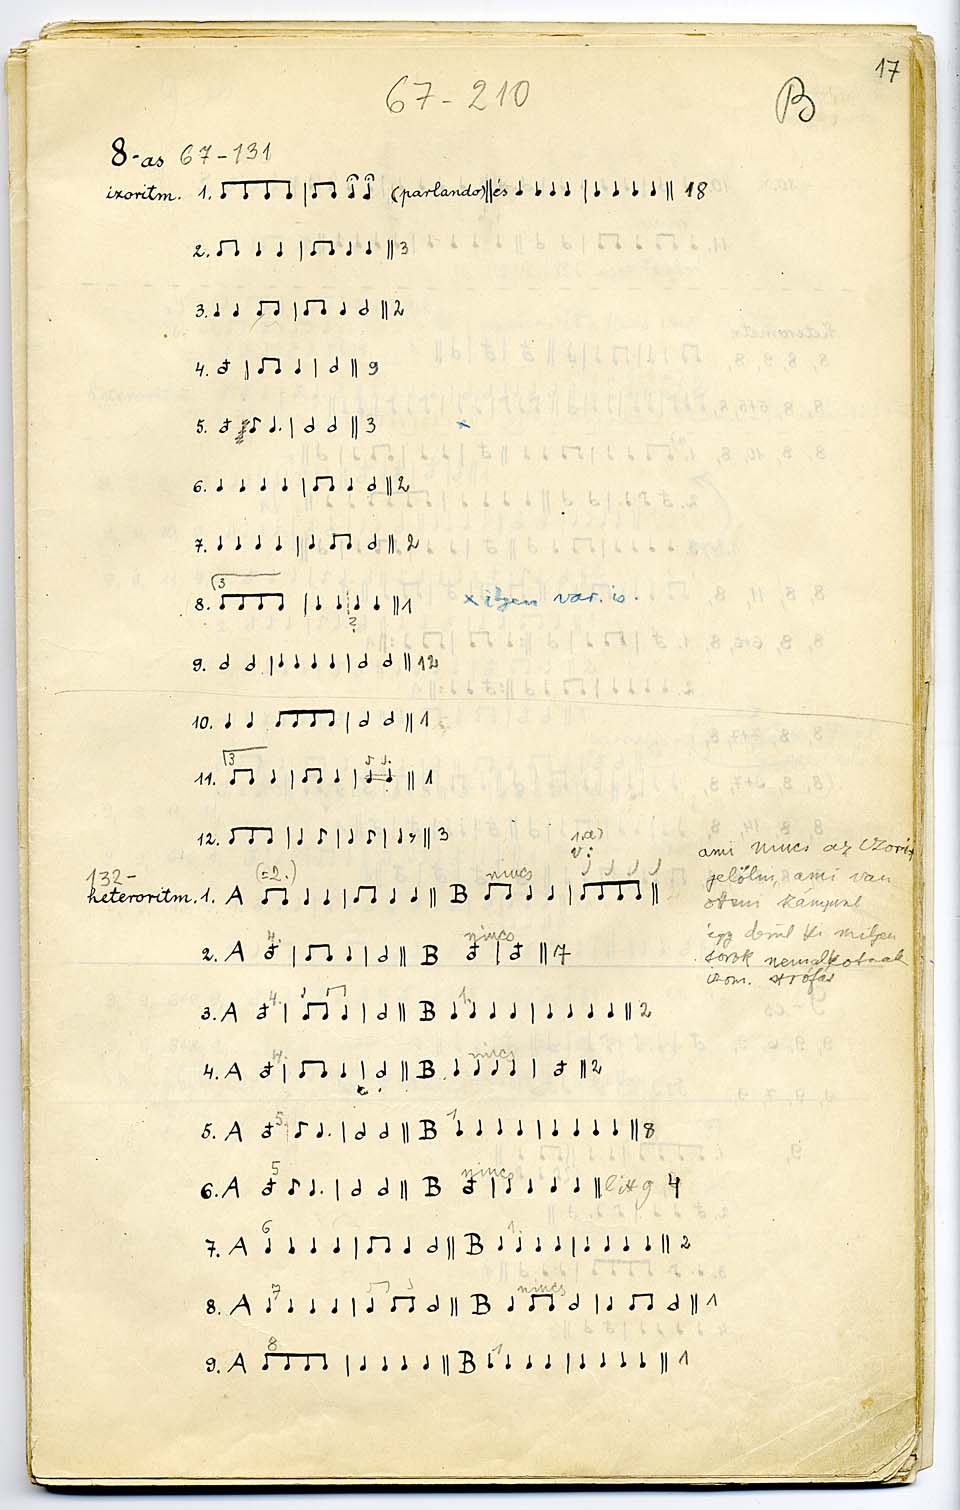 17
67-210
B
8-as 67-131
izoritm. 1. (parlando) és 18
2. 3
3. 2
4. 9
5. 3 x
6. 2
7. 2
8. 3 ? 1 x ilyen var. is.
9. 12
10. 1
11. 3 1
12. 3
132-
heteroritm. 1. A (=2.) B nincs 1.a) v:
2. A 4. B nincs 7
3. A 4. B 1. 2
4. A 4. B nincs 2
5. A 5. B 1 8
6. A 5 B nincs 4
7. A 6 B 1. 2
8. A 7 B nincs 1
9. A 8 B 1 1
ami nincs az izorit
jelölni, ami van
egy derül ki milyen
sorok nem alkotnak
izom. strófás